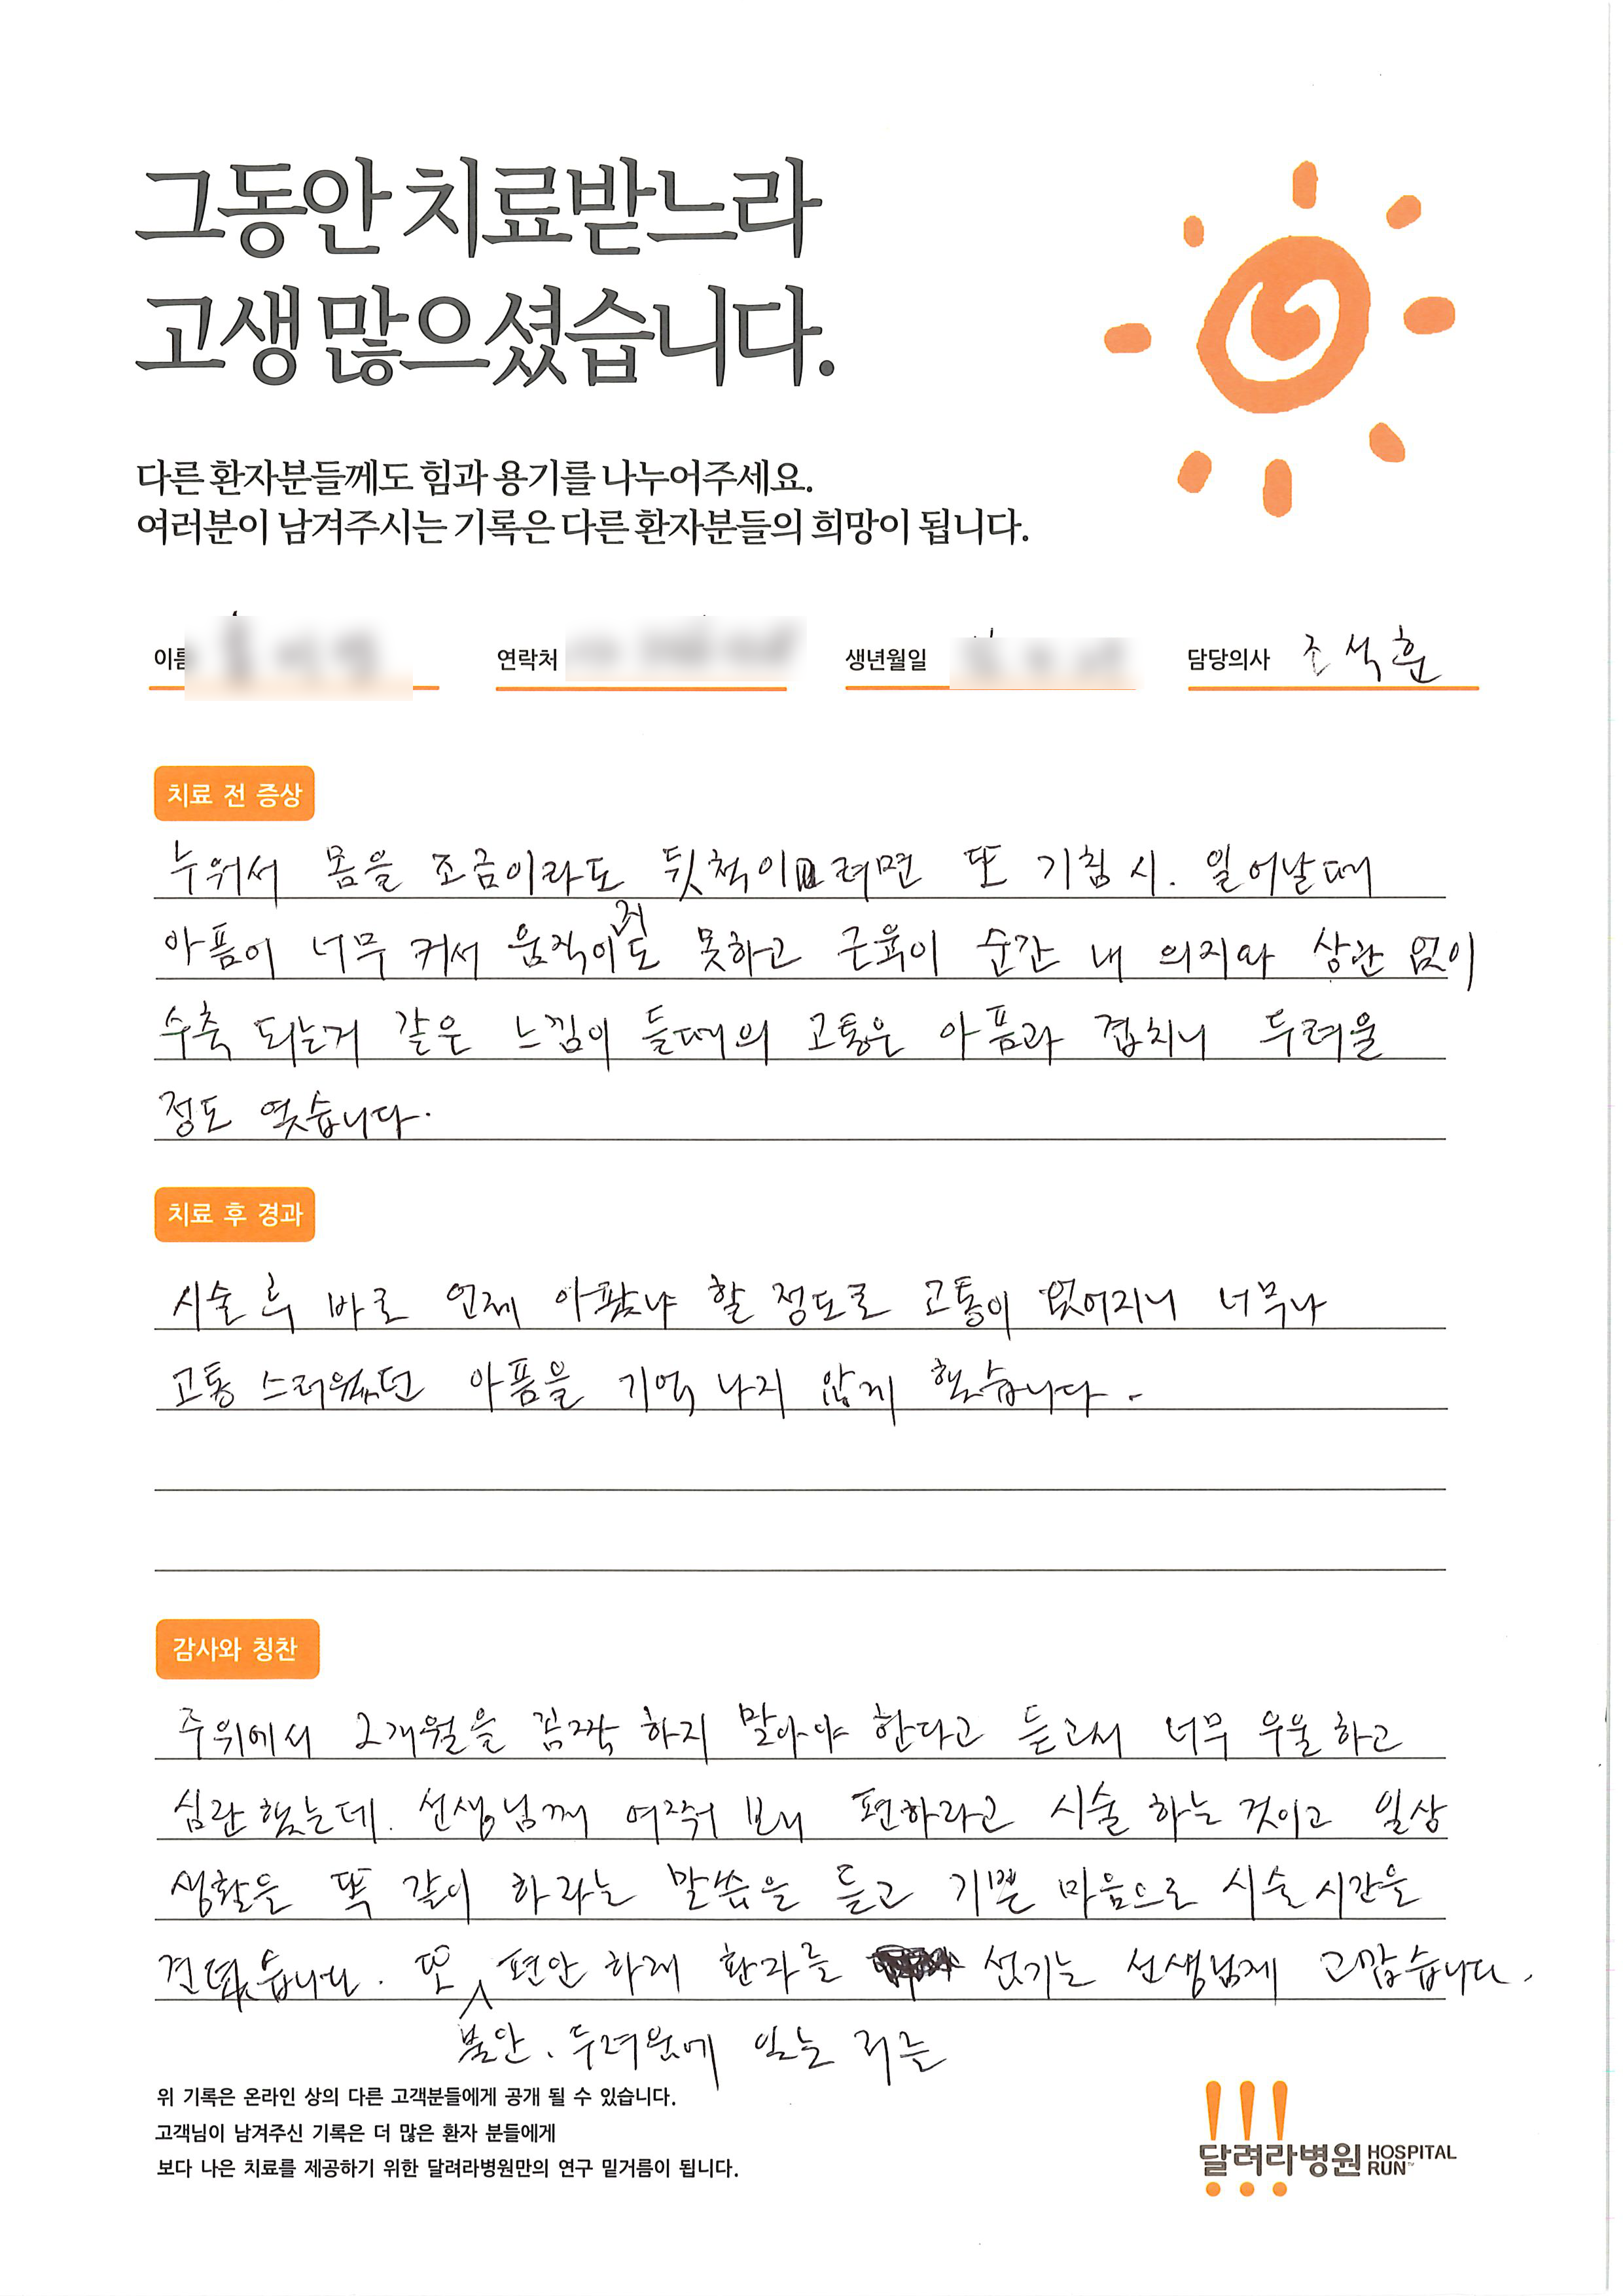 그동안 치료받느라
고생 많으셨습니다.
다른 환자분들께도 힘과 용기를 나누어주세요.
여러분이 남겨주시는 기록은 다른 환자분들의 희망이 됩니다.
이름 연락처 생년월일 담당의사 조석훈
치료 전 증상
누워서 몸을 조금이라도 뒷척이려면 또 기침 시. 일어날때
아픔이 너무 커서 움직이지도 못하고 근육이 순간 내 의지와 상관 없이
수축 되는거 같은 느낌이 들때의 고통은 아픔과 겹치니 두려울
정도 였습니다.
치료 후 경과
시술 후 바로 언제 아팠냐 할 정도로 고통이 없어지니 너무나
고통 스러웠던 아픔을 기억 나지 않게 했습니다.
감사와 칭찬
주위에서 2개월을 꼼짝 하지 말아야 한다고 듣고서 너무 우울 하고
심란 했는데. 선생님께 여쭤 보니 편하라고 시술 하는 것이고 일상
생활을 똑 같이 하라는 말씀을 듣고 기쁜 마음으로 시술 시간을
견뎠습니다. 또 편안 하게 환자를 섬기는 선생님께 고맙습니다.
불안. 두려움에 있는 저를
위 기록은 온라인 상의 다른 고객분들에게 공개 될 수 있습니다.
고객님이 남겨주신 기록은 더 많은 환자 분들에게
보다 나은 치료를 제공하기 위한 달려라병원만의 연구 밑거름이 됩니다.
달려라병원 HOSPITAL RUN